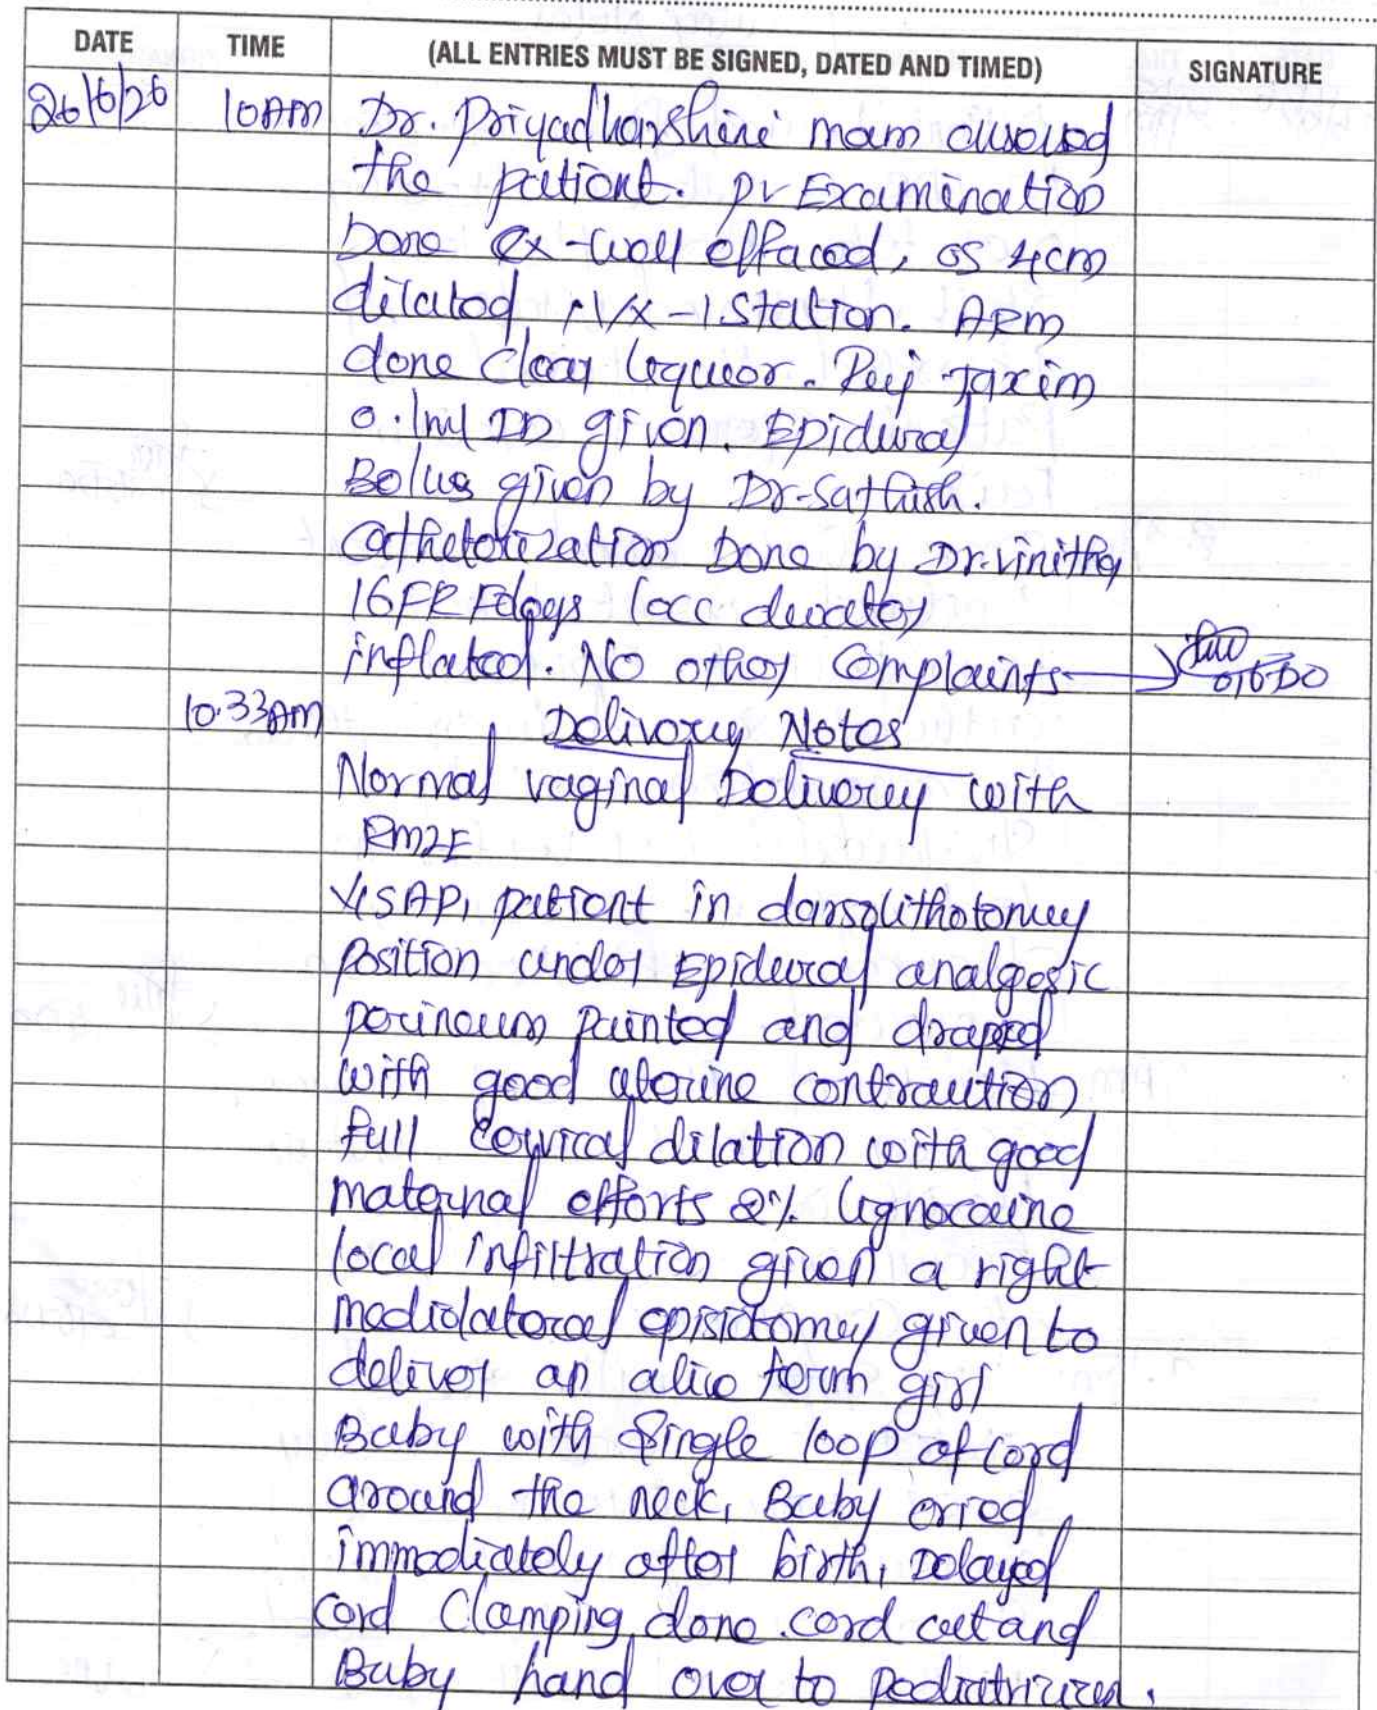 DATE TIME (ALL ENTRIES MUST BE SIGNED, DATED AND TIMED) SIGNATURE
26/6/26 10AM Dr. Priyadharshini mam
the patient. PV Examination
Done CX-well effaced, OS 4cm
dilated, -1 station. ARM
done clear liquor. Inj Taxim
0.1ml ID given. Epidural
Bolus given by Dr. Sathish.
Catheterization Done by Dr. Vinitha,
16FR Foleys 10cc
inflated. No other Complaints
10.33AM Delivery Notes
Normal vaginal Delivery with
RMLE
↓SAP, patient in dorsolithotomy
position under Epidural analgesic
perineum painted and draped
with good uterine contraction,
full cervical dilation with good
maternal efforts 2% lignocaine
local infiltration given a right
mediolateral episiotomy given to
deliver an alive term girl
Baby with single loop of cord
around the neck, Baby cried
immediately after birth, Delayed
cord Clamping done. cord cut and
Baby hand over to